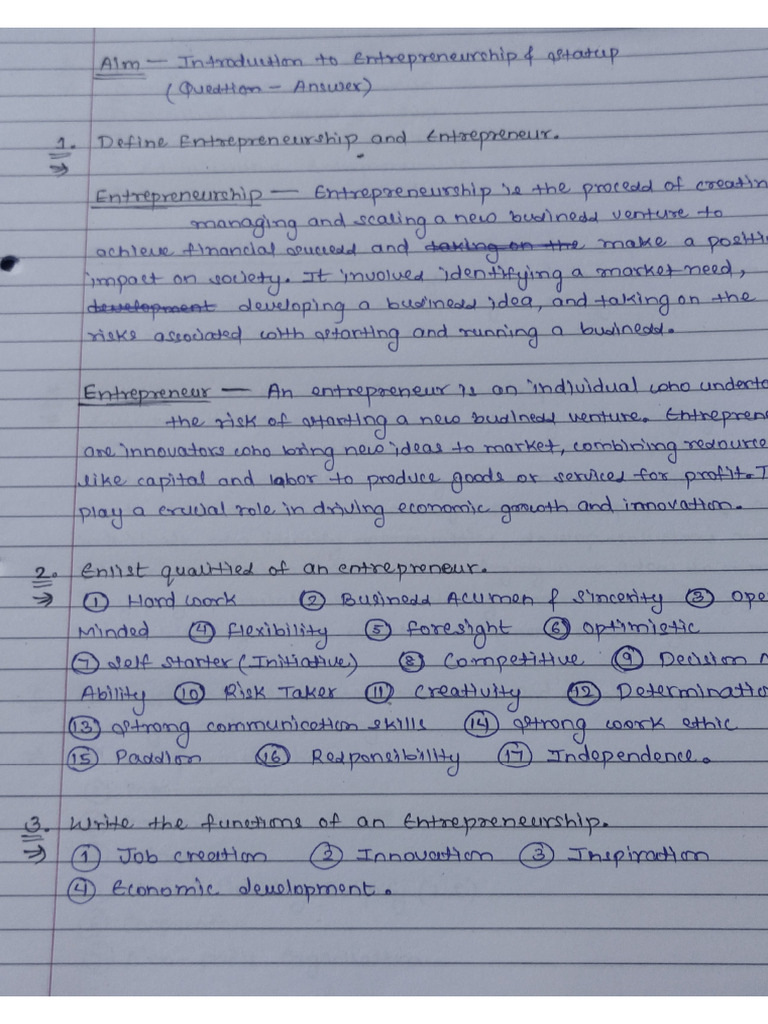 Aim — Introduction to Entrepreneurship & startup
(Question - Answer)
1. Define Entrepreneurship and Entrepreneur.
→
Entrepreneurship — Entrepreneurship is the process of creatin
managing and scaling a new business venture to
achieve financial success and taking on the make a positi
impact on society. It involves identifying a market need,
development developing a business idea, and taking on the
risks associated with starting and running a business.
Entrepreneur — An entrepreneur is an individual who underta
the risk of starting a new business venture. Entrepren
are innovators who bring new ideas to market, combining resource
like capital and labor to produce goods or services for profit. T
play a crucial role in driving economic growth and innovation.
2. Enlist qualities of an entrepreneur.
→ ① Hard work ② Business Acumen & Sincerity ③ Ope
Minded ④ Flexibility ⑤ Foresight ⑥ Optimistic
⑦ Self starter (Initiative) ⑧ Competitive ⑨ Decision M
Ability ⑩ Risk Taker ⑪ Creativity ⑫ Determinatio
⑬ Strong communication skills ⑭ Strong work ethic
⑮ Passion ⑯ Responsibility ⑰ Independence.
3. Write the functions of an Entrepreneurship.
→ ① Job creation ② Innovation ③ Inspiration
④ Economic development.